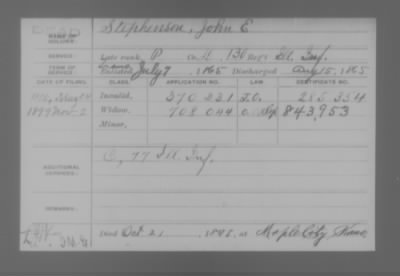 DEAD
NAME OF SOLDIER: Stephenson, John E
SERVICE: Late rank, P Co. H, 130 Reg't Ill. Inf.
TERM OF SERVICE: Enlisted July 7, 1865 Discharged Aug 15, 1865
DATE OF FILING. CLASS. APPLICATION NO. LAW. CERTIFICATE NO.
Invalid, 370 231 285 354
1899 Nov. 2 Widow, 708 044 843,953
Minor,
ADDITIONAL SERVICES: C, 77 Ill Inf.
REMARKS:
Died Oct. 21, 1898, at Maple City, Kans.